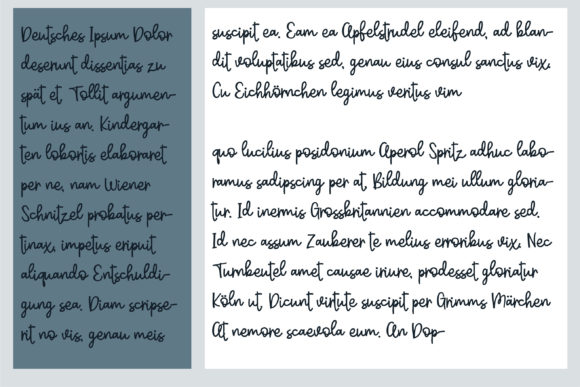 Deutsches Ipsum Dolor
deserunt dissentias zu
spät et Tollit argumen-
tum ius an. Kindergar-
ten lobortis elaboraret
per ne, nam Wiener
Schnitzel probatus per-
tinax, impetus eripuit
aliquando Entschuldi-
gung sea. Diam scripse-
rit no vis, genau meis
suscipit ea. Eam ea Apfelstrudel eleifend, ad blan-
dit voluptatibus sed, genau eius consul sanctus vix,
Cu Eichhörnchen legimus veritus vim
quo lucilius posidonium Aperol Spritz adhuc labo-
ramus sadipscing per at, Bildung mei ullum gloria-
tur. Id inermis Grossbritannien accommodare sed.
Id nec assum Zauberer te melius erroribus vix, Nec
Turnbeutel amet causae iriure, prodesset gloriatur
Köln ut, Dicunt virtute suscipit per Grimms Märchen
At nemore scaevola eum. An Dop-